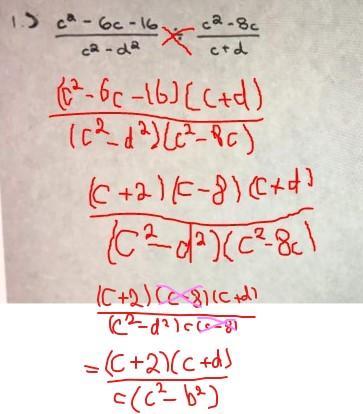 1.) c² - 6c - 16 / c² - d² ÷ c² - 8c / c + d
(c² - 6c - 16)(c + d) / (c² - d²)(c² - 8c)
(c + 2)(c - 8)(c + d) / (c² - d²)(c² - 8c)
(c + 2)(c - 8)(c + d) / (c² - d²)c(c - 8)
= (c + 2)(c + d) / c(c² - b²)